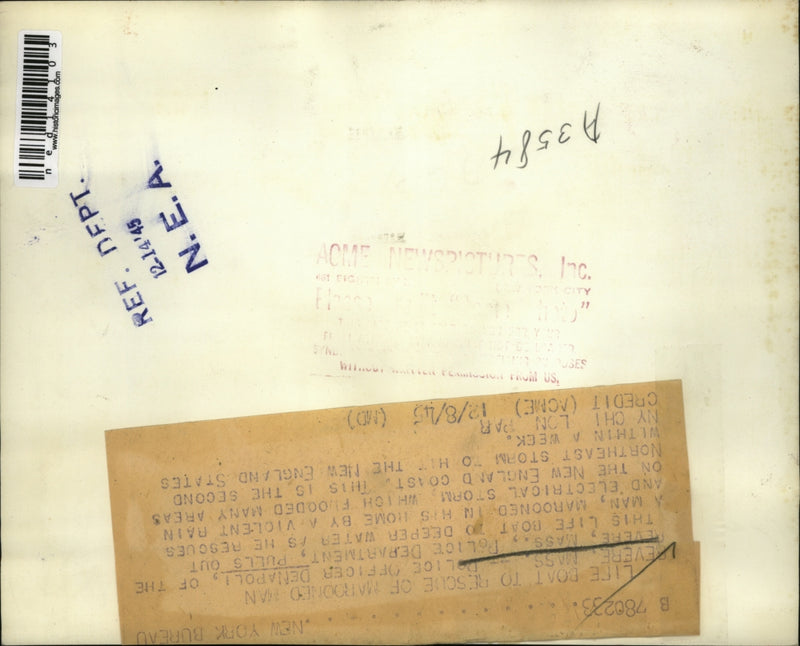 ned14103
www.historicimages.com
A3584
REF. DEPT.
12-14-'45
N.E.A.
ACME NEWSPICTURES, Inc.
NEW YORK CITY
WITHOUT WRITTEN PERMISSION FROM US,
NEW YORK BUREAU
B 780233
LIFE BOAT TO RESCUE OF MAROONED MAN
REVERE, MASS. -- POLICE OFFICER DENAPOLI, OF THE
REVERE, MASS., POLICE DEPARTMENT, PULLS OUT
THIS LIFE BOAT TO DEEPER WATER AS HE RESCUES
A MAN, MAROONED IN HIS HOME BY A VIOLENT RAIN
AND ELECTRICAL STORM, WHICH FLOODED MANY AREAS
ON THE NEW ENGLAND COAST. THIS IS THE SECOND
NORTHEAST STORM TO HIT THE NEW ENGLAND STATES
WITHIN A WEEK.
NY CHI LON PAR
CREDIT (ACME) 12/8/45 (MD)